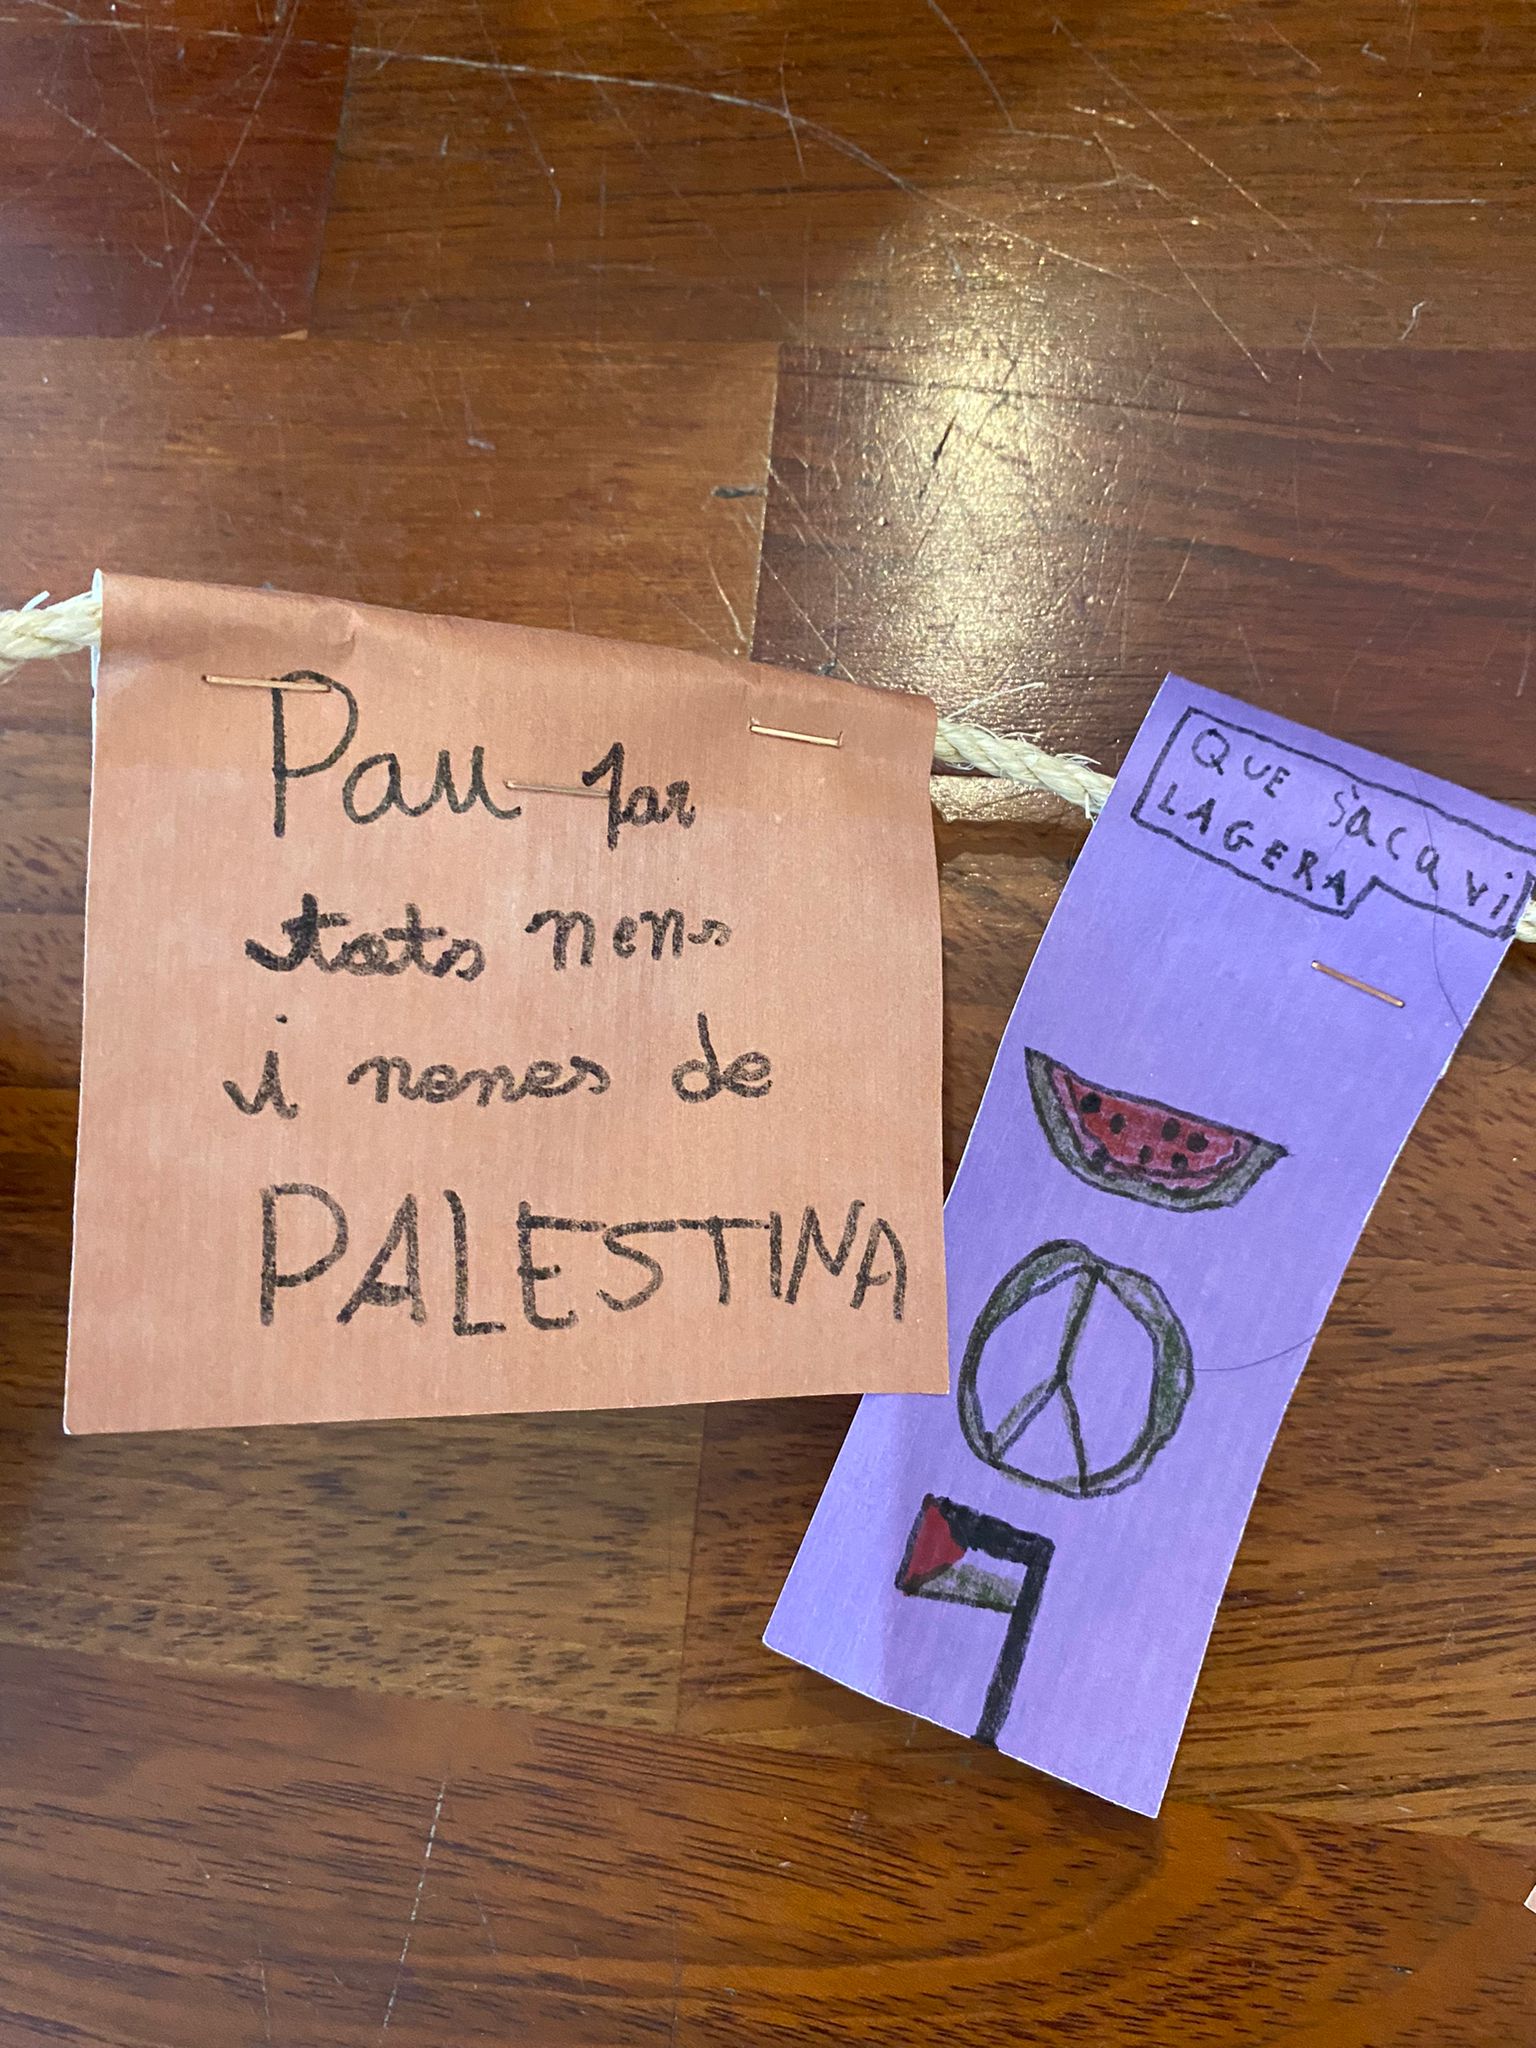 Pau par
tots nens
i nenes de
PALESTINA
QUE SACAVi
LAGERA